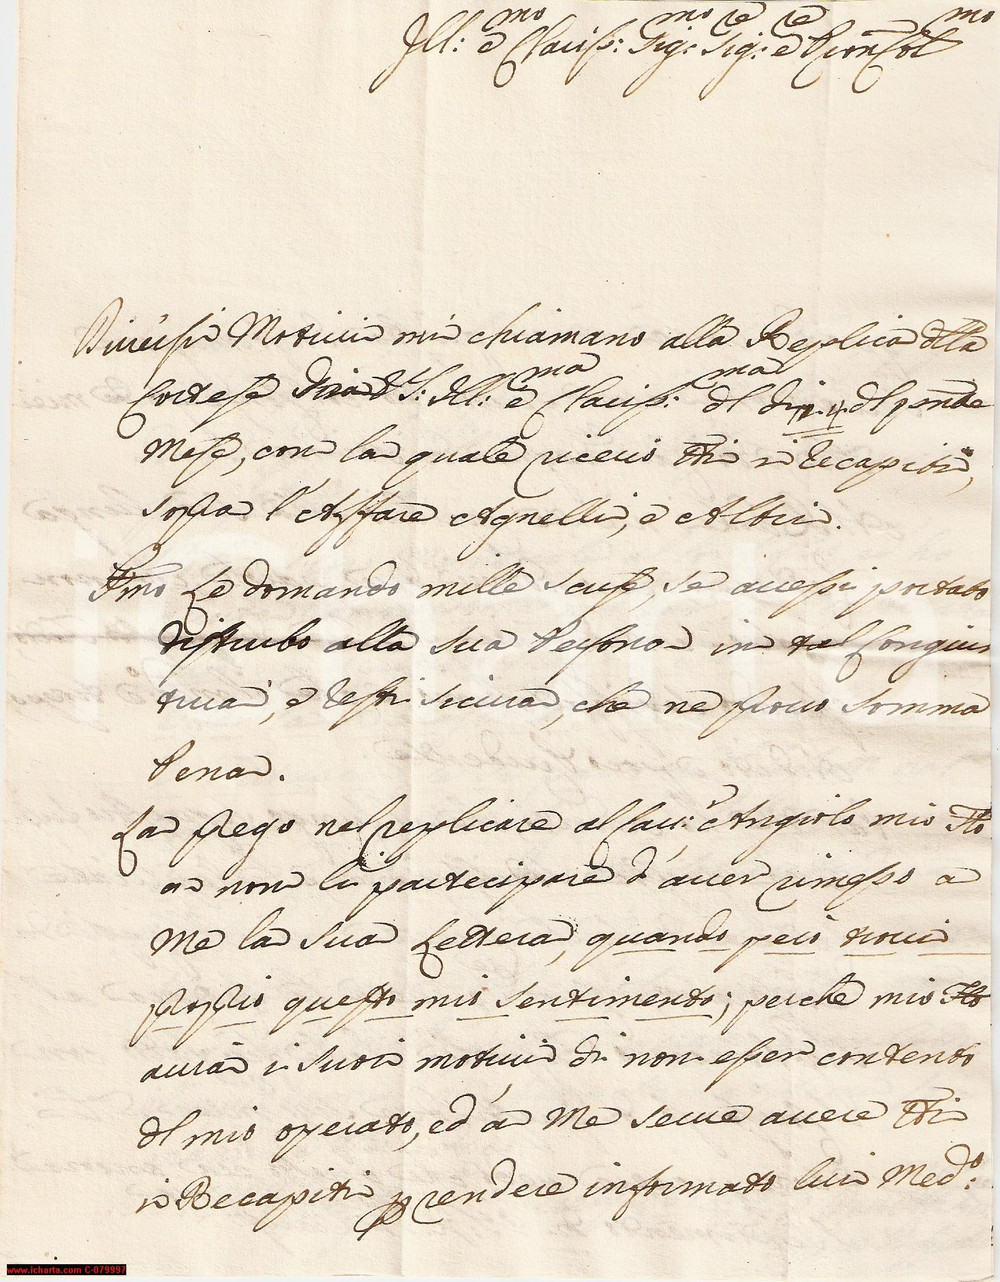 Ill:mo e Clariss:mo Sig:re Sig:re e Pron Col mo
Diversi Motivi mi chiamano alla Replica della
Cortese di V: S: Ill:ma e Clariss:ma del dì 4 del pnte
Mese, con la quale ricevo tti i recapiti,
sopra l'Affare Agnelli, e Albi.
Pmo Le domando mille scuse, se avessi portato
disturbo alla sua Persona in tal Congiun
tura, e resti sicura, che ne provo somma
Pena.
La prego nel replicare al Cav:e Angiolo mio Fllo
a non li partecipare d'aver rimesso a
Me la sua Lettera, quando però trovi
proprio questo mio sentimento; perchè mio Fllo
avrà i suoi motivi di non esser contento
del mio operato, ed à Me serve avere tti
i Recapiti p rendere informato lui Med:o
www.icharta.com C-079997